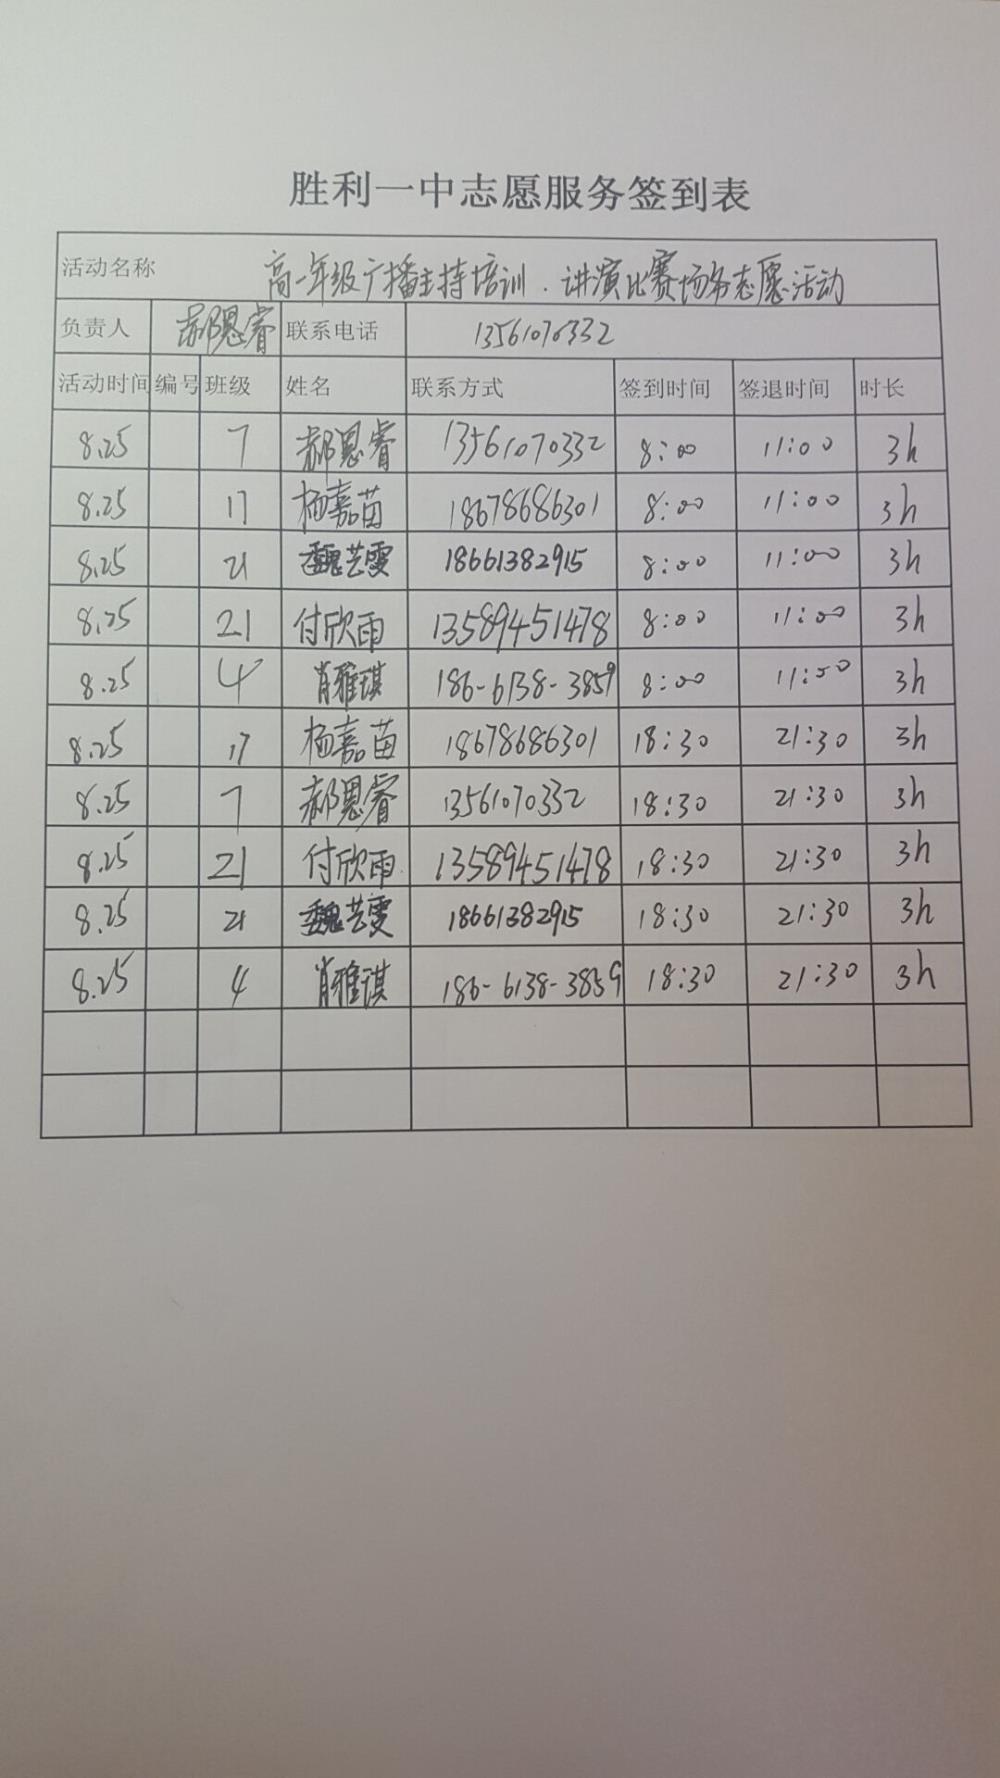 胜利一中志愿服务签到表
活动名称 高一年级广播主持培训、讲演比赛场务志愿活动
负责人 郝恩睿 联系电话 13561070332
活动时间 编号 班级 姓名 联系方式 签到时间 签退时间 时长
8.25 7 郝恩睿 13561070332 8:00 11:00 3h
8.25 17 杨嘉苗 18678686301 8:00 11:00 3h
8.25 21 魏芸雯 18661382915 8:00 11:00 3h
8.25 21 付欣雨 13589451478 8:00 11:00 3h
8.25 4 肖雅琪 186-6138-3859 8:00 11:00 3h
8.25 17 杨嘉苗 18678686301 18:30 21:30 3h
8.25 7 郝恩睿 13561070332 18:30 21:30 3h
8.25 21 付欣雨 13589451478 18:30 21:30 3h
8.25 21 魏芸雯 18661382915 18:30 21:30 3h
8.25 4 肖雅琪 186-6138-3859 18:30 21:30 3h